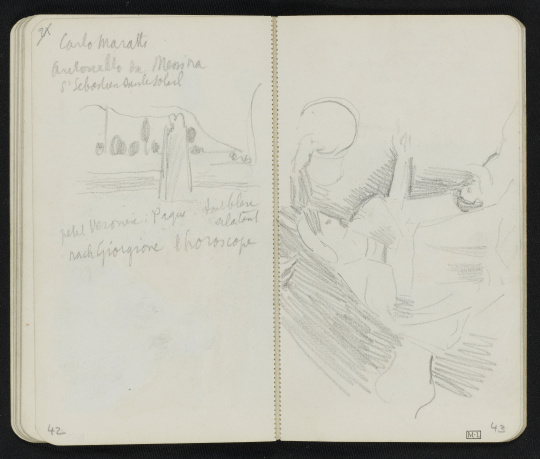 Carlo Maratti
Antonello da Messina
St Sebastien dans le soleil
petit Veronese: Paque tout bleu
eclatant
nach Giorgione l'horoscope
42
M-L
43